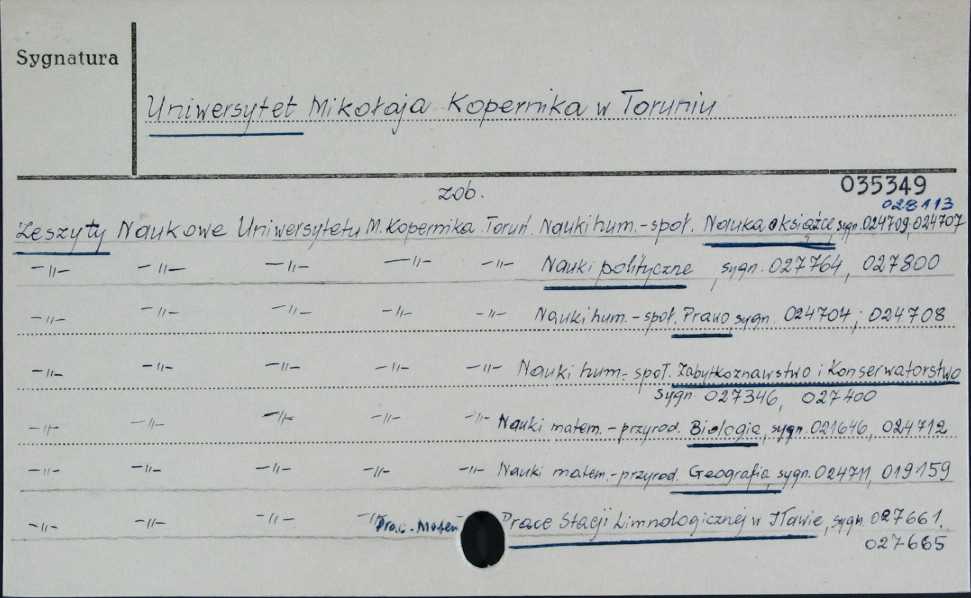 Sygnatura
Uniwersytet Mikołaja Kopernika w Toruniu
zob.
035349
028113
Zeszyty Naukowe Uniwersytetu M. Kopernika Toruń. Nauki hum.-społ. Nauka o książce sygn. 024709, 024707
-"- -"- -"- -"- -"- Nauki polityczne, sygn. 027764, 027800
-"- -"- -"- -"- -"- Nauki hum.-społ. Prawo sygn. 024704, 024708
-"- -"- -"- -"- -"- Nauki hum.-społ. Zabytkoznawstwo i Konserwatorstwo
sygn. 027346, 027400
-"- -"- -"- -"- -"- Nauki matem.-przyrod. Biologia, sygn. 021646, 024712
-"- -"- -"- -"- -"- Nauki matem.-przyrod. Geografia, sygn. 024711, 019159
-"- -"- -"- -"- Prace Stacji Limnologicznej w Iławie, sygn. 027661,
027665